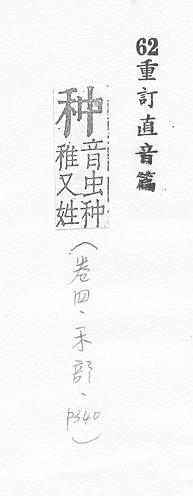 62重訂直音篇
种
音虫种
稚又姓
(卷四、禾部、P340)